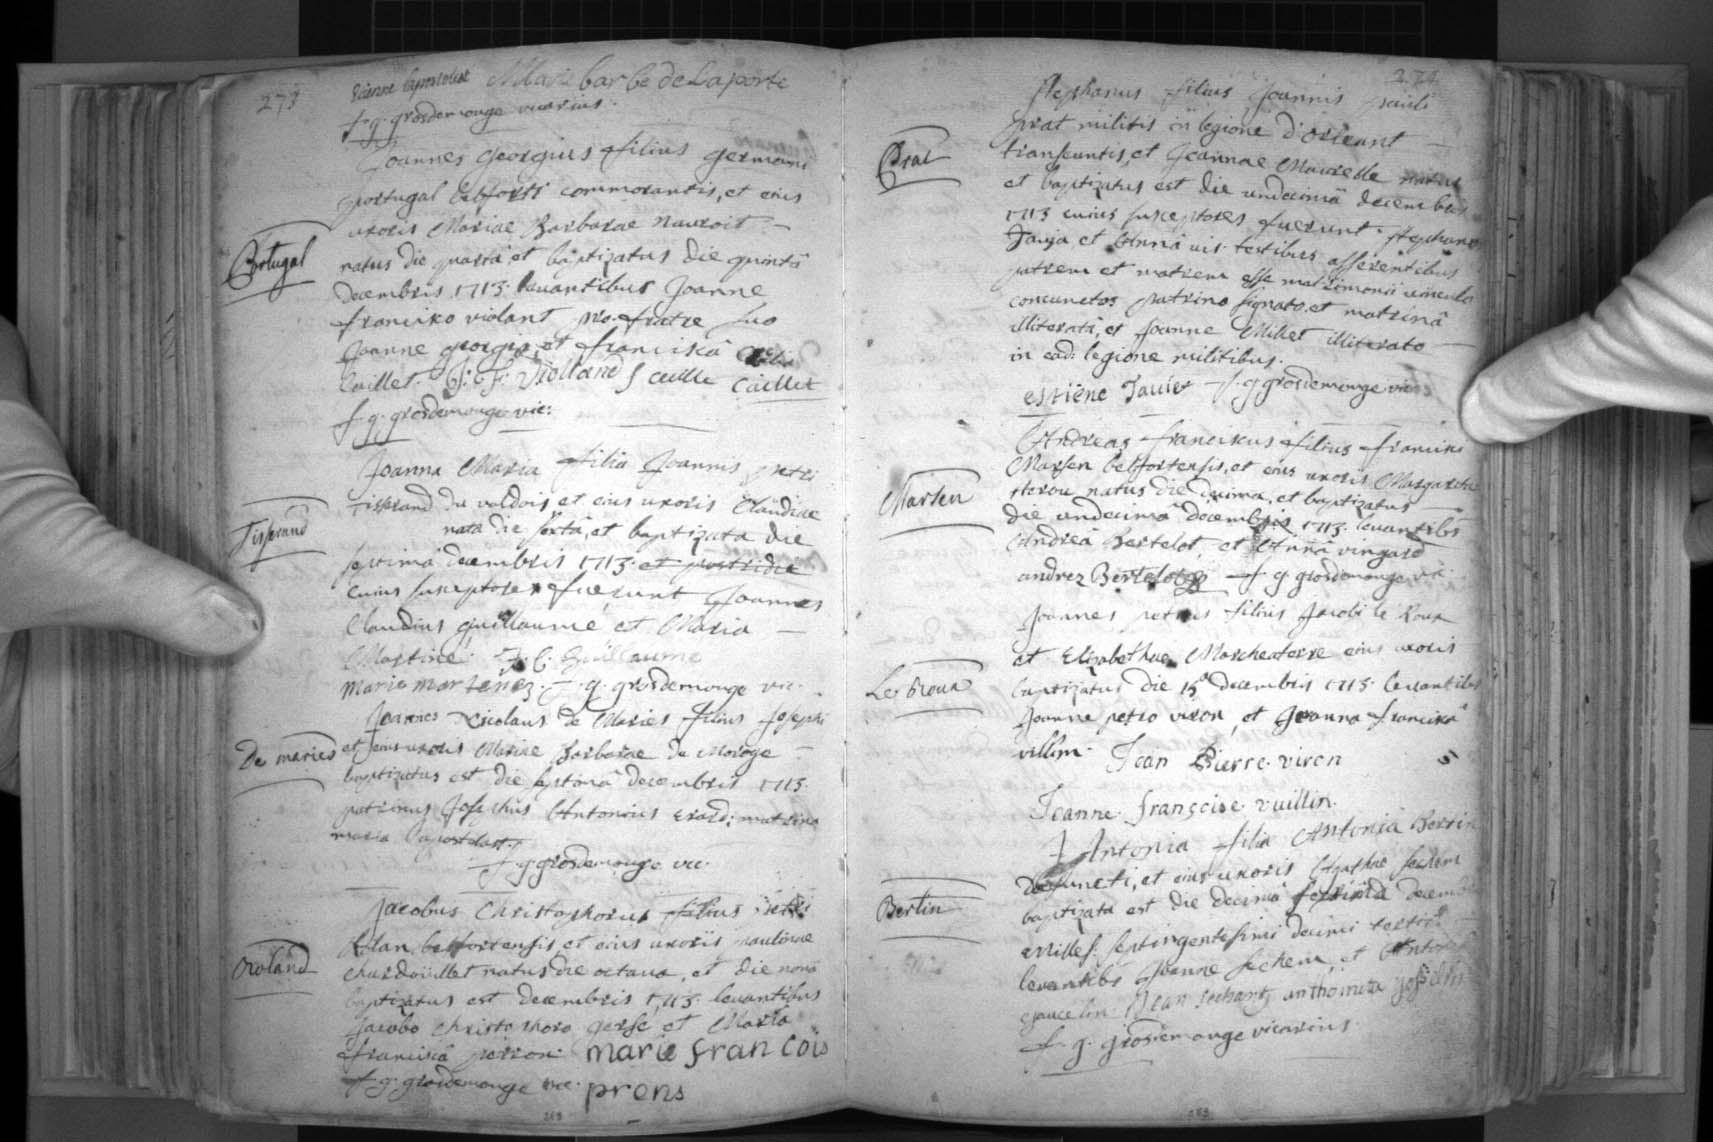 273
Marie barbe de Laporte
f. g. grosdemouge vicarius.
Joannes Georgius filius germani
portugal belforti commorantis, et eius
uxoris Mariae Barbarae Nauroit
Portugal
natus die quarta et baptizatus die quintâ
decembris 1713. levantibus Joanne
francisco violant pro fratre suo
Joanne georgio, et franciscâ
Caillet. J: F: Violland caillet
f. g. grosdemouge vic:
Joanna Maria filia Joannis petri
Tisserand
tisserand du valdois et eius uxoris Claudiae
nata die sextâ, et baptizata die
septimâ decembris 1713. et postridie
cuius susceptores fuerunt Joannes
Claudius guillaume et Maria
Martine. J. C. Guillaume
marie martenez. f. g. grosdemouge vic.
Joannes Nicolaus de Maries filius Josephi
De maries
et eius uxoris Mariae Barbarae de Moroge
baptizatus est die septimâ decembris 1713.
patrinus Josephus Antonius Erard: matrina
maria
f. g. grosdemouge vic.
Jacobus Christophorus filius petri
Roland
belfortensis et eius uxoris paulinae
chardoüillet natus die octava, et die nonâ
baptizatus est decembris 1713. levantibus
Jacobo christophoro gerse et Mariâ
franciscâ perron. marie fran cois
f. g. grosdemouge vic. prens
274
Stephanus filius Joannis pauli
prat militis in legione d'orleant
Prat
transeuntis, et Joannae Maurelle natus
et baptizatus est die undecimâ decembris
1713 cuius susceptores fuerunt Stephanus
et Annâ testibus asserentibus
patrem et matrem esse matrimonii vinculo
coniunctos patrino signato, et matrinâ
illiteratâ, et Joanne Millet illiterato
in eadẽ legione militibus.
estiene Tauier f. g. grosdemouge vic
Andreas franciscus filius francisci
Marsen belfortensis, et eius uxoris Margarethae
Marsen
natus die decima, et baptizatus
die undecimâ decembris 1713. levantibs
Andreâ Bertelot, et Annâ vingard
andrez Bertelot f. g. grosdemouge vic
Joannes petrus filius Jacobi le Roux
et Elizabethae Marcheaterre eius uxoris
Le Roux
baptizatus die 15â decembris 1713. levantibus
Joanne petro viron, et Joanna franciscâ
villin. Jean Pierre viron
Jeanne françoise vuillin.
Antonia filia Antonia Bertin
defuncti, et eius uxoris Agathae sechem
Bertin
baptizata est die decimâ septimâ decemb
milles. septingentesimi decimi tertii
levantibs Joanne sechem, et Antonia
f. g. grosdemouge vicarius.